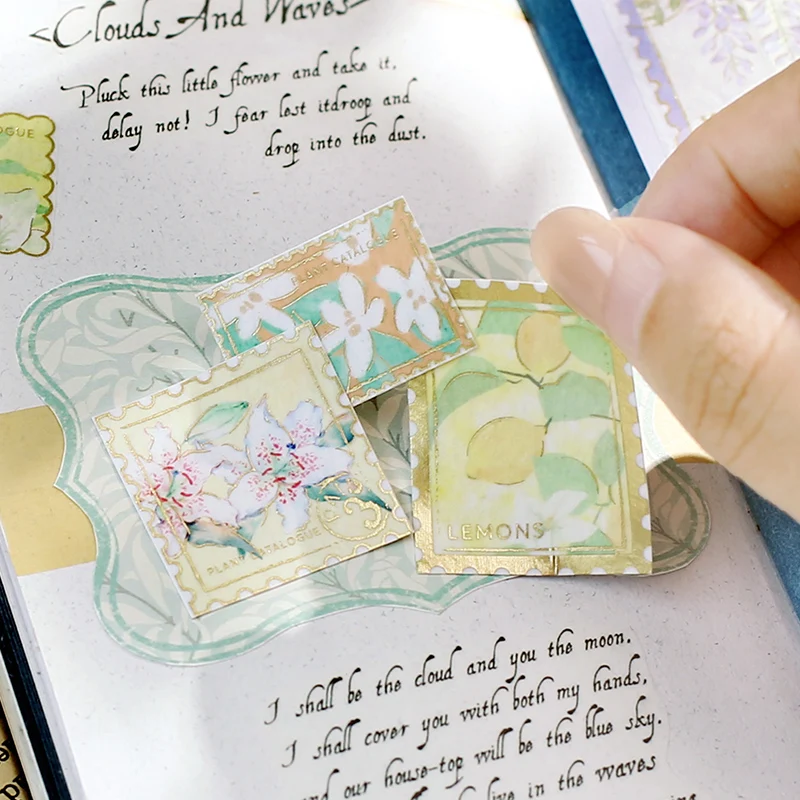 <Clouds And Waves>
Pluck this little flower and take it,
delay not! I fear lest itdroop and
drop into the dust.
OGUE
PLANT CATALOGUE
LEMONS
PLANT CATALOGUE
I shall be the cloud and you the moon.
I shall cover you with both my hands,
and our house-top will be the blue sky.
live in the waves